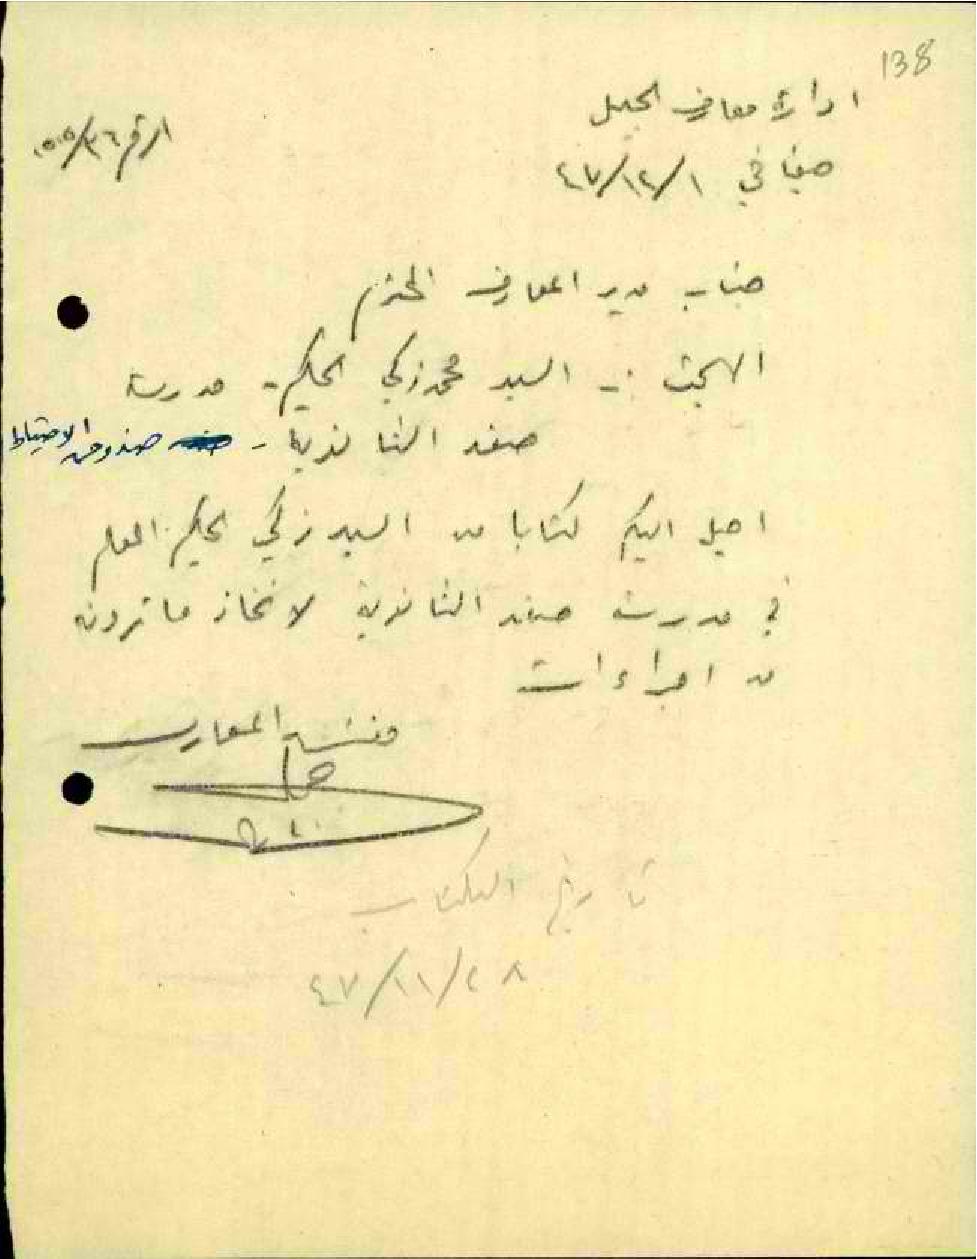 138
ادارة معارف الجليل
الرقم
حيفا في ٤٧/١٢/١
جناب مدير المعارف المحترم
المبحث :- السيد محمد زكي الحكيم - مدرسة
صفد الثانوية - صندوق الاحتياط
احيل اليكم كتابا من السيد زكي الحكيم المعلم
في مدرسة صفد الثانوية لاتخاذ ما ترونه
من اجراءات
مفتش المعارف
تاريخ الكتاب
٤٧/١١/٢٨